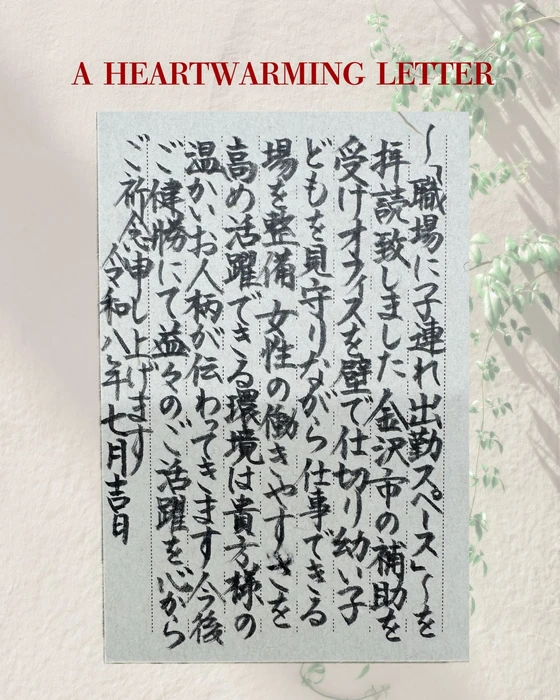 A HEARTWARMING LETTER
～「職場に子連れ出勤スペース」～を
拝読致しました 金沢市の補助を
受けオフィスを壁で仕切り幼い子
どもを見守りながら仕事できる
場を整備 女性の働きやすさを
高め活躍できる環境は貴方様の
温かいお人柄が伝わってきます 今後
ご健勝にて益々のご活躍を心から
ご祈念申し上げます
令和八年七月吉日